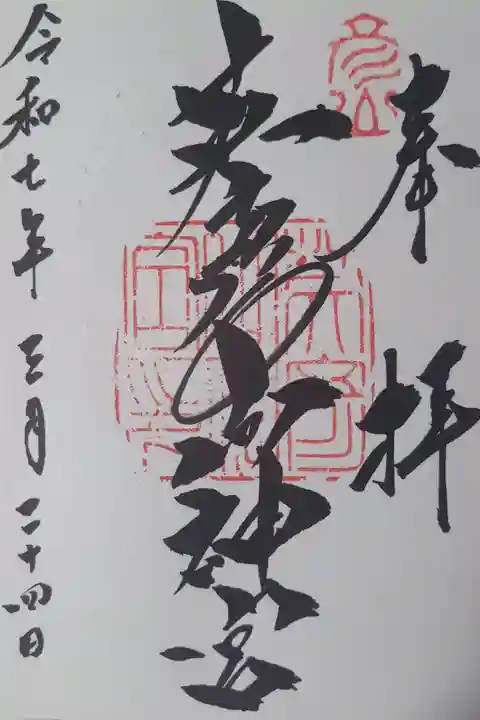 奉拝
英彦山神宮
令和七年三月二十四日